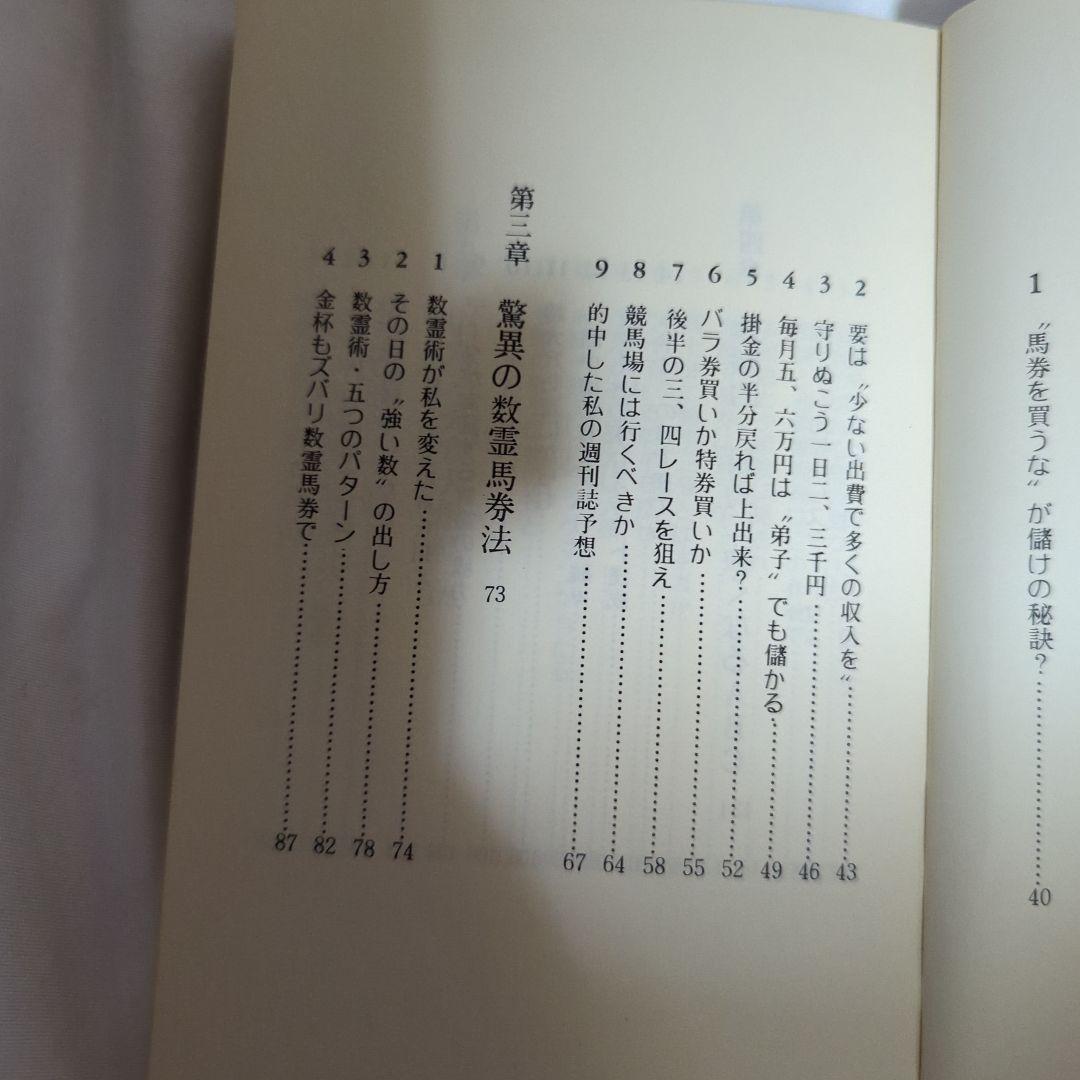 1 〝馬券を買うな〟が儲けの秘訣？……………40
2 要は〝少ない出費で多くの収入を〟……………43
3 守りぬこう一日二、三千円……………46
4 毎月五、六万円は〝弟子〟でも儲かる……………49
5 掛金の半分戻れば上出来？……………52
6 バラ券買いか特券買いか……………55
7 後半の三、四レースを狙え……………58
8 競馬場には行くべきか……………64
9 的中した私の週刊誌予想……………67
第三章 驚異の数霊馬券法 73
1 数霊術が私を変えた……………74
2 その日の〝強い数〟の出し方……………78
3 数霊術・五つのパターン……………82
4 金杯もズバリ数霊馬券で……………87